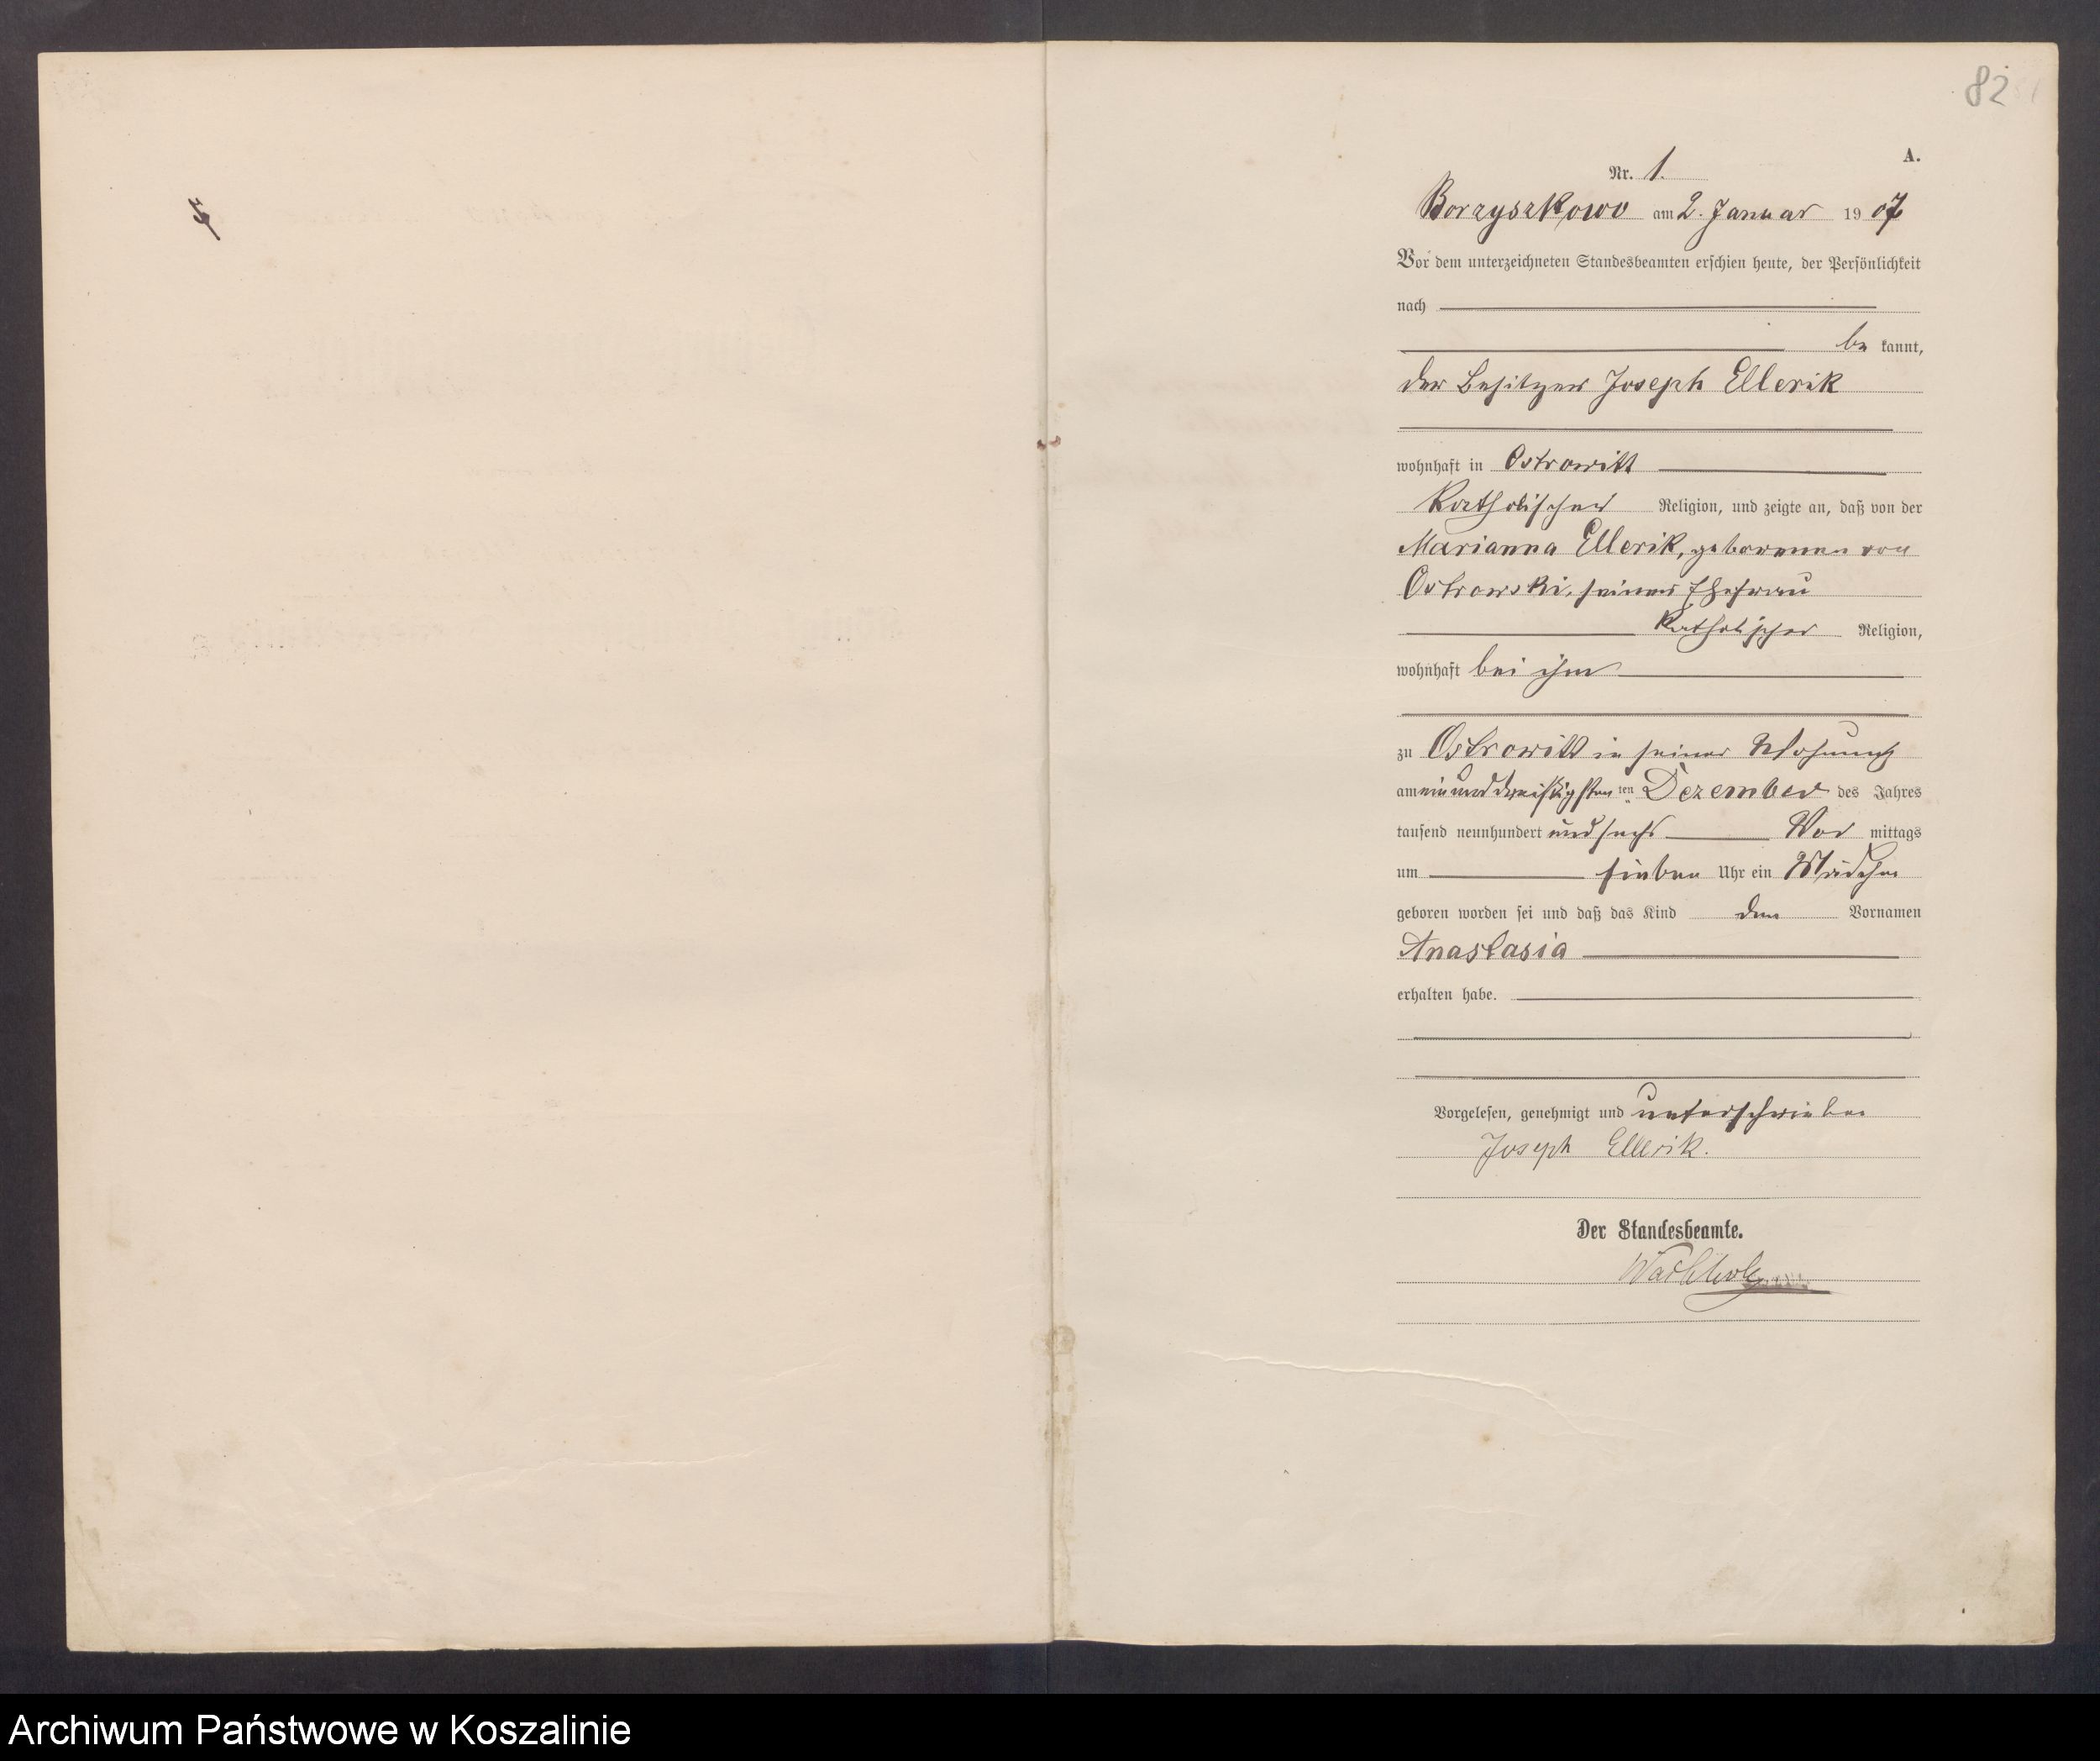 82
A.
Nr. 1.
Borzyszkowo am 2. Januar 1907
Vor dem unterzeichneten Standesbeamten erschien heute, der Persönlichkeit
nach
be kannt,
der Besitzer Joseph Ellerik
wohnhaft in Ostrowitt
katholischer Religion, und zeigte an, daß von der
Marianna Ellerik, geborenen von
Ostrowski, seiner Ehefrau
katholischer Religion,
wohnhaft bei ihm
zu Ostrowitt in seiner Wohnung
am einunddreißigsten ten Dezember des Jahres
tausend neunhundert und sechs Vor mittags
um sieben Uhr ein Mädchen
geboren worden sei und daß das Kind den Vornamen
Anastasia
erhalten habe.
Vorgelesen, genehmigt und unterschrieben
Joseph Ellerik.
Der Standesbeamte.
Archiwum Państwowe w Koszalinie